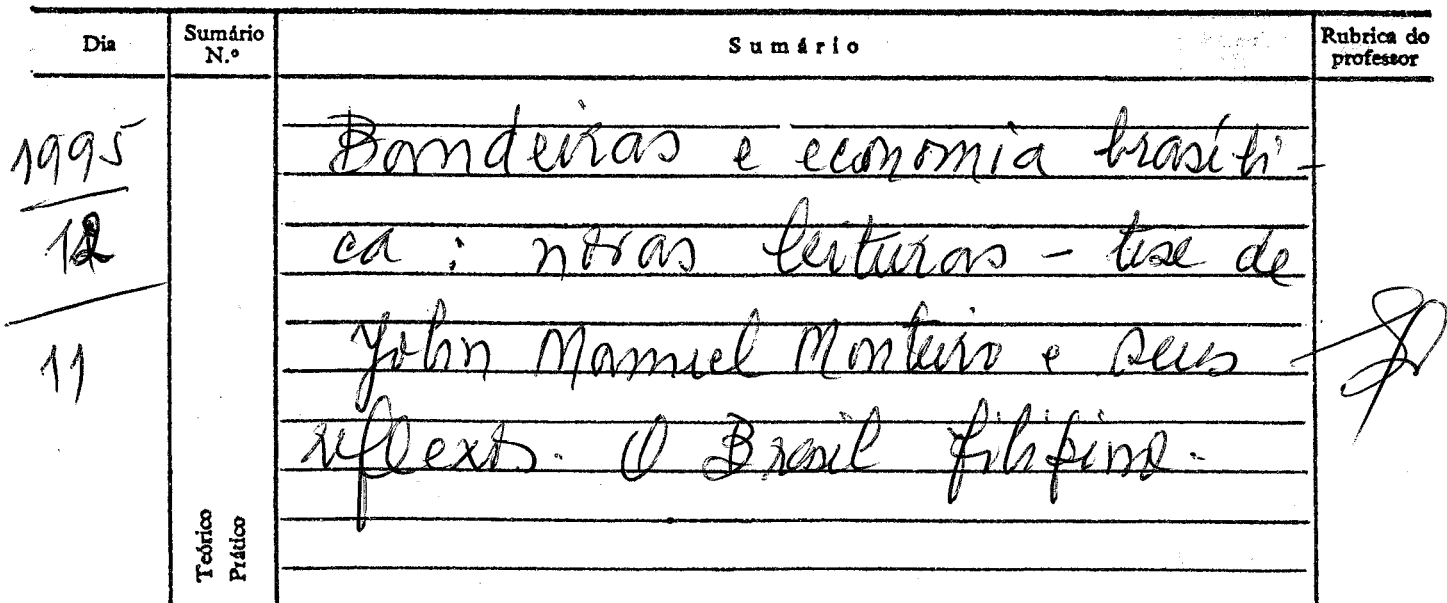 Dia
Sumário N.º
Sumário
Rubrica do professor
1995
12
11
Bandeiras e economia brasíli-
ca : novas leituras - tese de
John Manuel Monteiro e seus
reflexos. O Brasil filipino.
Teórico
Prático